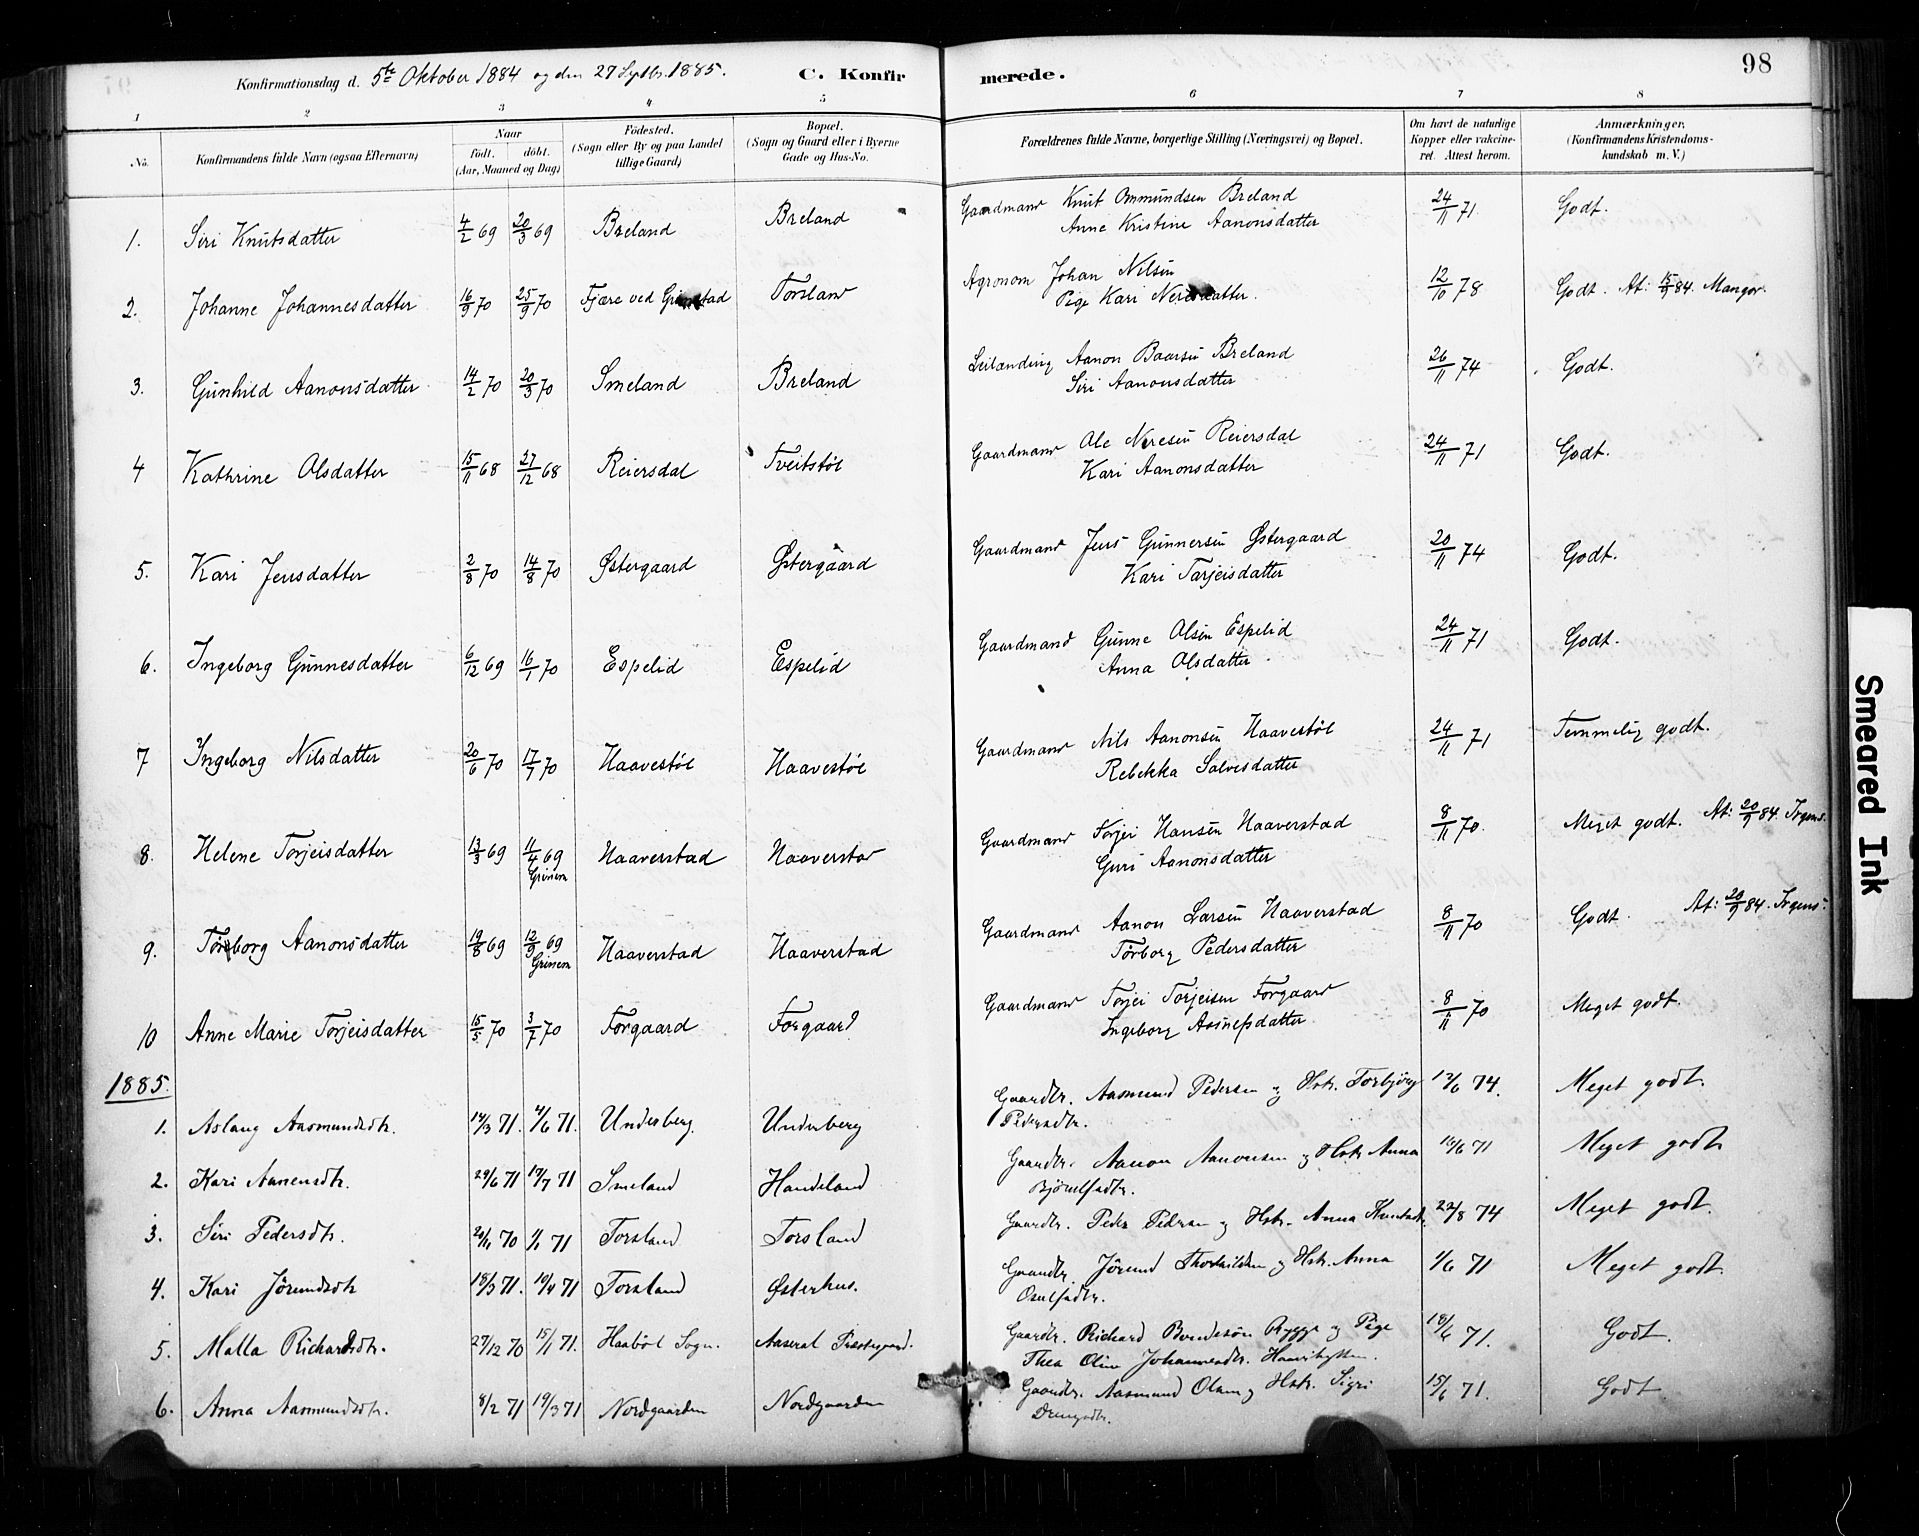 98
Konfirmationsdag d. 5te Oktober 1884 og den 27 Septbr. 1885. C. Konfirmerede.
1 2 3 4 5 6 7 8
No. Konfirmandens fulde Navn (ogsaa Efternavn) Naar født. døbt. (Aar, Maaned og Dag) Fødested. (Sogn eller By og paa Landet tillige Gaard) Bopæl. (Sogn og Gaard eller i Byerne Gade og Hus-No. Forældrenes fulde Navne, borgerlige Stilling (Næringsvei) og Bopæl. Om havt de naturlige Kopper eller vakcineret. Attest herom. Anmærkninger. (Konfirmandens Kristendomskundskab m. V.)
1. Siri Knutsdatter 4/2 69 20/3 69 Breland Breland Gaardmand Knut Ommundsen Breland 24/11 71 Godt.
Anne Kristine Aanonsdatter
2. Johanne Johannesdatter 16/9 70 25/9 70 Fjære ved Grimstad Torsland Agronom Johan Nilsen 12/10 78 Godt. At: 15/9 84. Mangor.
Pige Kari Neresdatter.
3. Gunhild Aanonsdatter 14/2 70 20/3 70 Smeland Breland Leilænding Aanon Baarsen Breland 26/11 74 Godt.
Siri Aanonsdatter
4 Kathrine Olsdatter 15/11 68 27/12 68 Reiersdal Tveitstøl Gaardmand Ole Neresen Reiersdal 24/11 71 Godt.
Kari Aanonsdatter
5. Kari Jensdatter 2/8 70 14/8 70 Østergaard Østergaard Gaardmand Jens Gunnersen Østergaard 20/11 74 Godt.
Kari Tarjeisdatter
6. Ingeborg Gunnesdatter 6/12 69 16/1 70 Espelid Espelid Gaardmand Gunne Olsen Espelid 24/11 71 Godt.
Anna Olsdatter.
7 Ingeborg Nilsdatter 20/6 70 17/7 70 Haavestøl Haavestøl Gaardmand Nils Aanonsen Haavestøl 24/11 71 Temmelig godt.
Rebekka Salvesdatter
8. Helene Torjeisdatter 13/3 69 11/4 69 Grinem Haaverstad Haaverstad Gaardmand Torjei Hansen Haaverstad 8/11 70. Meget godt. At: 20/9 84. Irgens.
Guri Aanonsdatter
9. Torborg Aanonsdatter 19/8 69 12/9 69 Grinem Haaverstad Haaverstad Gaardmand Aanon Larsen Haaverstad 8/11 70 Godt. At: 20/9 84. Irgens.
Tørborg Pedersdatter
10 Anne Marie Torjeisdatter 15/5 70 3/7 70 Forgaard Forgaard Gaardmand Torjei Torjeisen Forgaard 8/11 70 Meget godt.
Ingeborg Asinessdatter
1885.
1. Aslaug Aasmundsdtr. 14/3 71. 4/6 71. Underberg. Underberg Gaardbr. Aasmund Pedersen og Hstr. Torbjørg 12/6 74. Meget godt.
Pedersdtr.
2. Kari Aanensdtr. 29/6 71 17/7 71 Smeland Handeland Gaardbr. Aanon Aanonsen og Hstr. Anna 16/6 71 Meget godt
Bjørulfsdtr.
3. Siri Pedersdtr. 20/11 70 1/1 71 Torsland Torsland Gaardbr. Peder Pedersen og Hstr. Anna 22/8 74 Meget godt.
4. Kari Jørundsdtr 18/3 71. 10/4 71 Torsland Østerhus. Gaardbr. Jørund Thorkildsen og Hstr. Anna 1/6 71 Meget godt.
Osulfsdtr.
5. Malla Richardsdtr. 27/12 70 15/1 71. Haabøl Sogn. Aaseral Præstegaard. Gaardbr. Richard Bendiksøn Rygge og Pige 18/6 71. Godt.
Thea Oline Johannesdtr.
6. Anna Aasmundsdtr. 8/2 71 19/3 71 Nordgaarden Nordgaarden Gaardbr. Aasmund Olsen og Hstr. Sigri 15/6 71. Godt.
Drengsdtr.
Smeared Ink